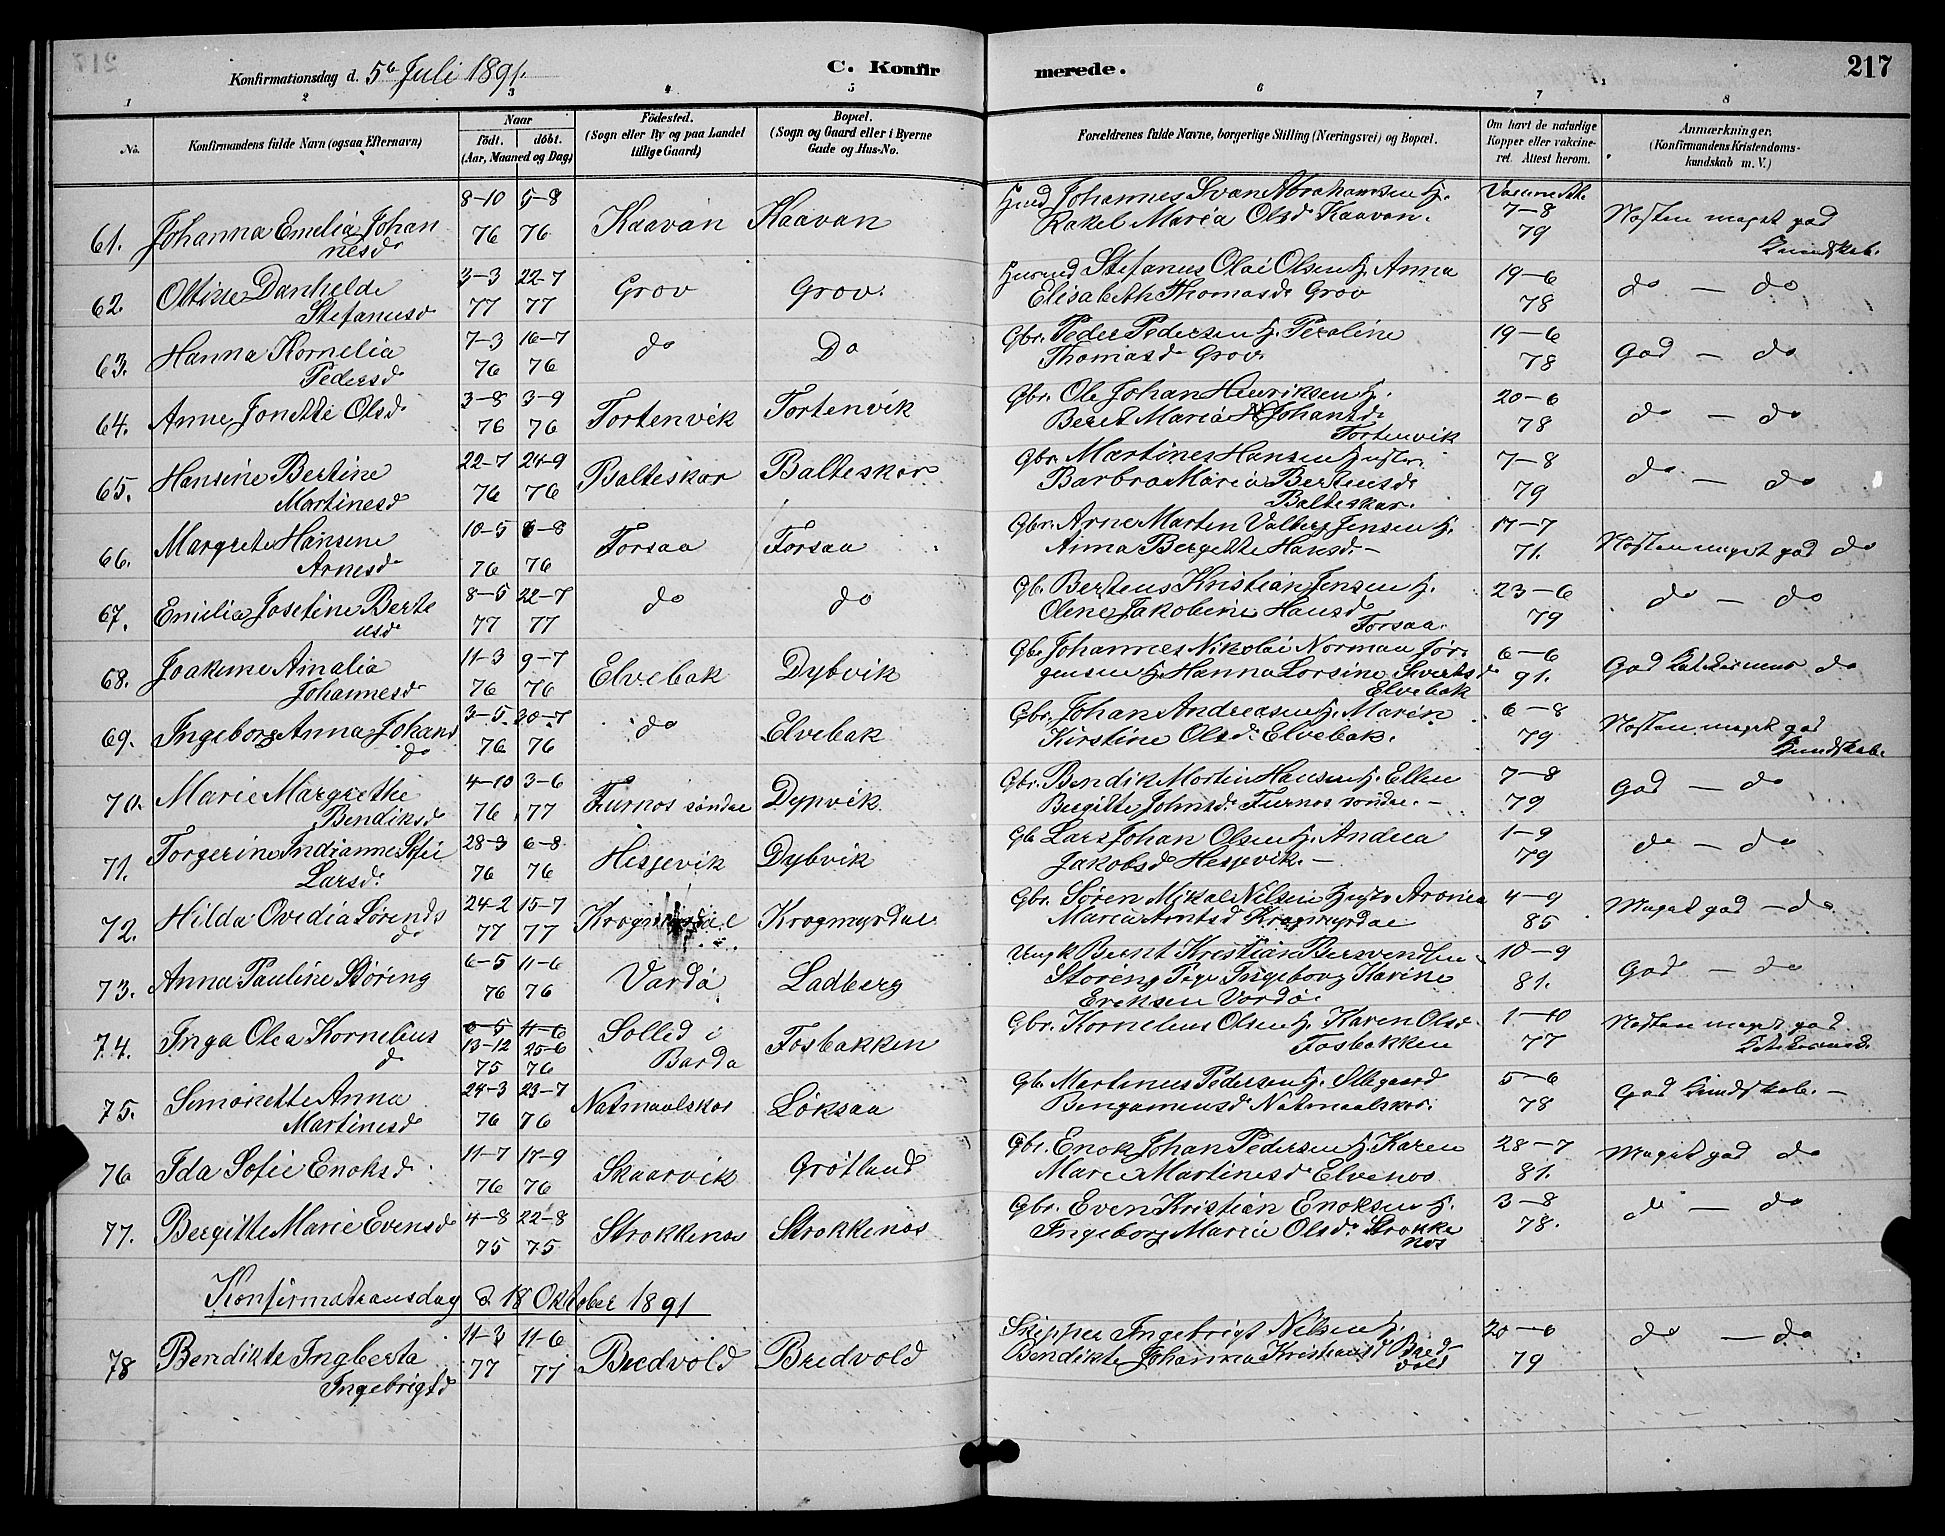 217
Konfirmationsdag d. 5te Juli 1891.
C. Konfir
merede.
217
1 2 3 4 5 6 7 8
No.
Konfirmandens fulde Navn (ogsaa Efternavn)
Naar
født. døbt.
(Aar, Maaned og Dag)
Fødested.
(Sogn eller By og paa Landet
tillige Gaard)
Bopæl.
(Sogn og Gaard eller i Byerne
Gade og Hus-No.
Forældrenes fulde Navne, borgerlige Stilling (Næringsvei) og Bopæl.
Om havt de naturlige
Kopper eller vakcine-
ret. Attest herom.
Anmærkninger.
(Konfirmandens Kristendoms-
kundskab m. V.)
8-10 5-8 Johannes Svan Abrahamsen H.
61. Johanna Emelia Johan 76 76 Kaavan Kaavan Rakel Maria Olsd Kaavan. 7-8 79 Nosten meget god
nesd Kundskab.
3-3 22-7 Stefanus Olai Olsen H. Anna 19-6
62. Oltine Danhelde 77 77 Grov Grov. Elisabeth Thomasd. Grov 78 do - do
Stefanusd
7-3 16-7 Gbr. Peder Pedersen H. Peroline 19-6
63. Hanna Kornelia 76 76 do Do Thomasd Grov. 78 God - do
Pedersd
3-8 3-9 Gbr. Ole Johan Henriksen H. 20-6
64. Anne Jonette Olsd. 76 76 Tortenvik Tortenvik Beret Maria Johansd. 78 do - do
Tortenvik
22-7 24-9 Gbr. Martines Hansen Hustr. 7-8
65. Hansine Bertine 76 76 Balteskar Balteskar. Barbro Maria Bertensd. 79 do - do
Martinesd Balteskar.
10-5 6-8 Gbr. Arne Marten Valberg Jensen H. 17-7
66. Margrete Hansene 76 76 Forsaa Forsaa Anna Bergitte Hansd. - 71. Nosten meget god do
Arnesd
8-5 22-7 Gb. Berteus Kristian Jensen H. 23-6
67. Emilia Josefine Berte 77 77 do do Olene Jakobine Hansd. 79 do - do
usd. Forsaa.
11-3 9-7 Gbr. Johannes Nikolai Norman Jør 6-6
68. Joakime Amalia 76 76 Elvebak Dybvik gensen H. Hanna Lorsine Sivertsd 91. God do
Johannesd. Elvebak
3-5. 30-7 Gbr. Johan Andreasen H. Maren 6-8
69. Ingeborg Anna Johans 76 76 do Elvebak Kirstine Olsd. Elvebak. 79 Nosten meget god
d. Kundskab.
4-10 3-6 Gbr. Bendik Mortin Hansen H. Ellen 7-8
70. Marie Margrethe 76 77 Furnos søndre Dypvik Bergitte Johnsd. Furnos søndre. - 79 God - do
Bendiksd
28-3 6-8 Gb. Lars Johan Olsen H. Andrea 1-9
71. Torgerine Indianne Sofie 76 76 Hesjevik Dybvik Jakobsd Hesjevik. - 79 do - do
Larsd.
24-2 15-7 Gbr. Søren Mikal Nilsen Hustr. Aronia 4-9
72. Hilda Ovedia Sørends 77 77 Krogmyrdal Krogmyrdal Maria Arntsd Krogmyrdal 85 Meget god - do
d.
6-5 11-6 Ungk Bernt Kristian Bersvendsen 10-9
73. Anna Pauline Støring 76 76 Vardø Ladberg Støring Pige Ingeborg Karine 81. God - do
Evensen Vardø.
6-5 11-6 Gbr. Kornelius Olsen H. Karen Olsd 1-10
74. Inga Olea Kornelius 13-12 25-6 Solled i Fosbakken Fosbakken 77 Nosten meget god
d 75 76 Bardo
24-3 23-7 Gb. Martinus Pedersen H. Ellegaard 5-6
75. Simonette Anna 76 76 Natmaalskar Løksaa Bengamensd. Natmaalskar. 78 God Kundskab. -
Martinesd
11-7 17-9 Gbr. Enok Johan Pedersen H. Karen 28-7
76 Ida Sofie Enoksd 76 76 Skaarvik Grøtland Marie Martinesd Elvenos 81. Meget god do
4-8 22-8 Gbr. Even Kristian Enoksen H. 3-8
77. Bergitte Marie Evensd 75 75 Strokkenos Strokkenos Ingeborg Maria Olsd. Strokke 78. do - do
nos
Konfirmationsdag d 18 Oktober 1891
11-3 11-6 Skipper Ingebrigt Nilsen H. 20-6
78 Bendikte Ingberta 77 77 Bredvold Bredvold Bendikte Johanna Kristiansd Bred 79 do - do
Ingebrigtsd vold